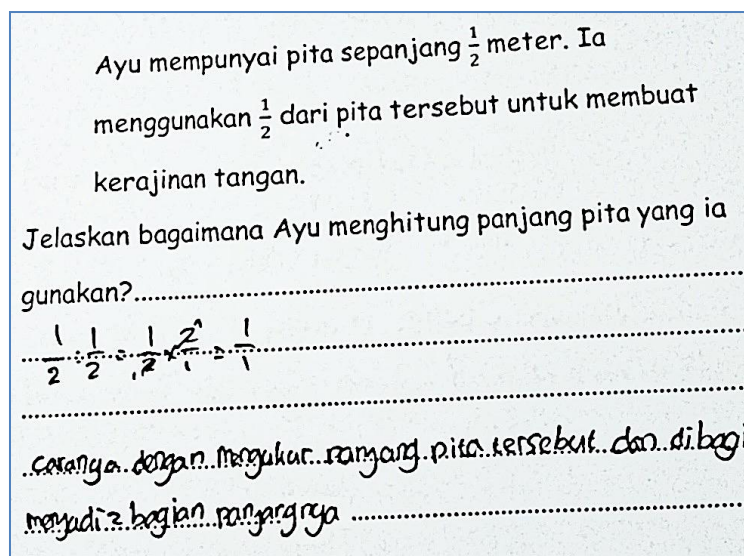 Ayu mempunyai pita sepanjang 1/2 meter. Ia
menggunakan 1/2 dari pita tersebut untuk membuat
kerajinan tangan.
Jelaskan bagaimana Ayu menghitung panjang pita yang ia
gunakan?
1/2 ÷ 1/2 = 1/2 × 2/1 = 1/1
caranya dengan mengukur panjang pita tersebut dan dibagi
menjadi 2 bagian panjangnya